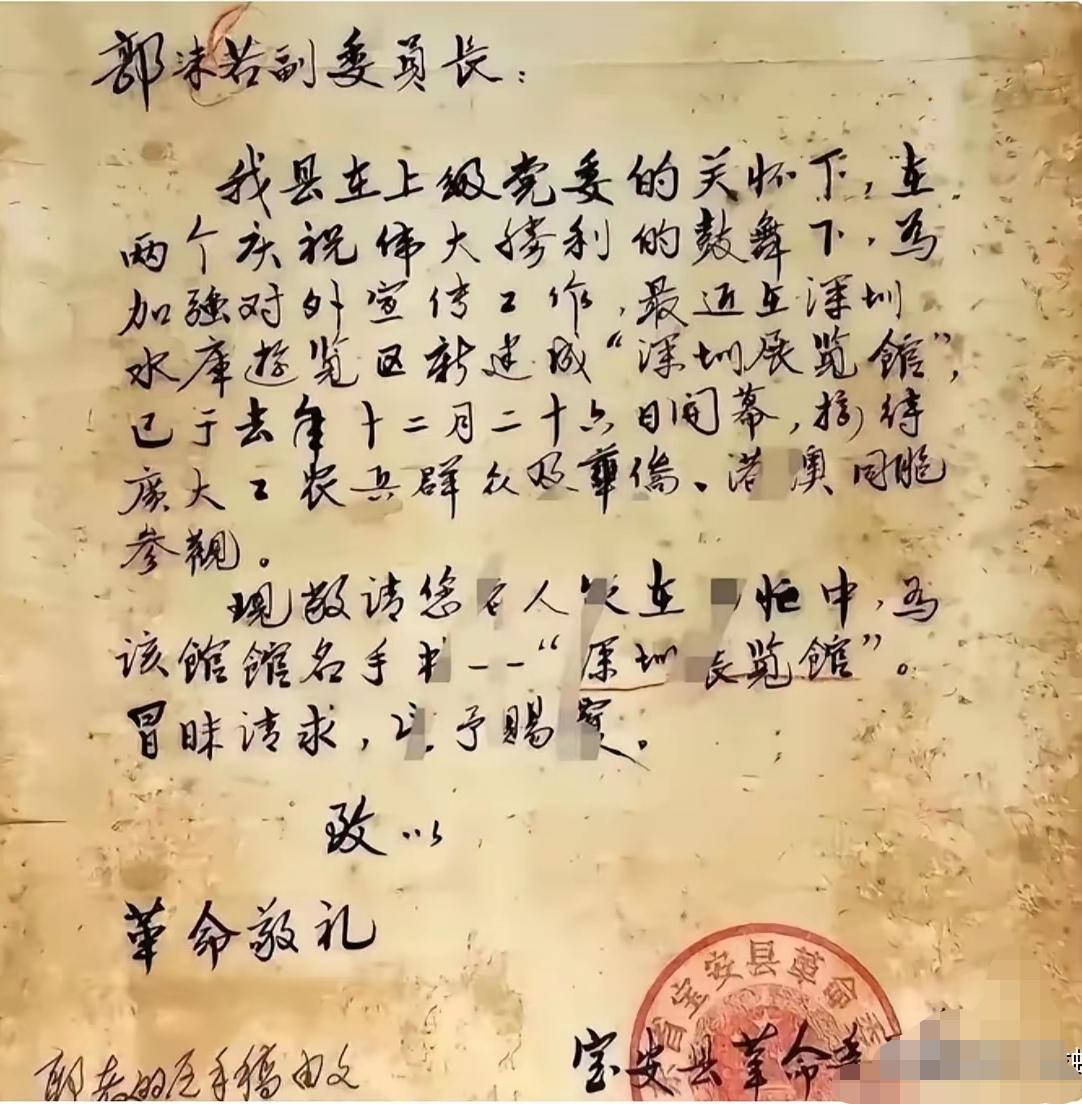 郭沫若副委员长：
我县在上级党委的关怀下，在
两个庆祝伟大勝利的鼓舞下，为
加强对外宣传工作，最近在深圳
水库游览区新建成“深圳展览館”，
已于去年十二月二十六日开幕，接待
廣大工农兵群众及華僑、港澳同胞
参觀。
现敬请您 人 在 忙中，为
该館館名手书——“深圳展览館”。
冒昧请求， 予賜 。
致以
革命敬礼
省宝安县革命委
宝安县革命委
郭老的 手稿由文